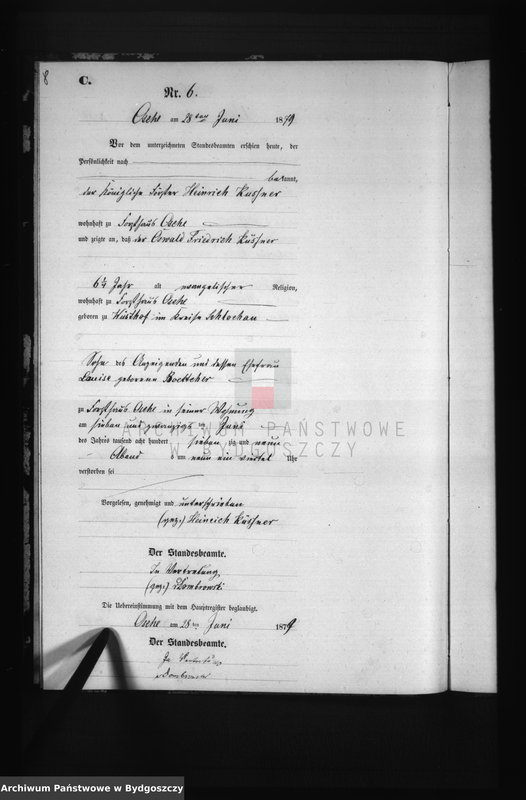 8
C.
Nr. 6.
Osche am 28ten Juni 1879
Vor dem unterzeichneten Standesbeamten erschien heute, der
Persönlichkeit nach
bekannt,
der Königliche Förster Heinrich Küssner
wohnhaft zu Forsthaus Osche
und zeigte an, daß der Oswald Friedrich Küssner
6¼ Jahr alt evangelischer Religion,
wohnhaft zu Forsthaus Osche
geboren zu im Kreise Schlochau
Sohn des Anzeigenden und dessen Ehefrau
Louise geborenen Boettcher
zu Forsthaus Osche in seiner Wohnung
am sieben und zwanzigs ten Juni
des Jahres tausend acht hundert sieben zig und neun
Abend s um neun ein viertel Uhr
verstorben sei
Vorgelesen, genehmigt und unterschrieben
(gez.) Heinrich Küssner
Der Standesbeamte.
In Vertretung
(gez.) Dombrowski
Die Uebereinstimmung mit dem Hauptregister beglaubigt.
Osche am 28ten Juni 1879
Der Standesbeamte.
In Vertretung
Dombrowski
ARCHIWUM PAŃSTWOWE
W BYDGOSZCZY
Archiwum Państwowe w Bydgoszczy